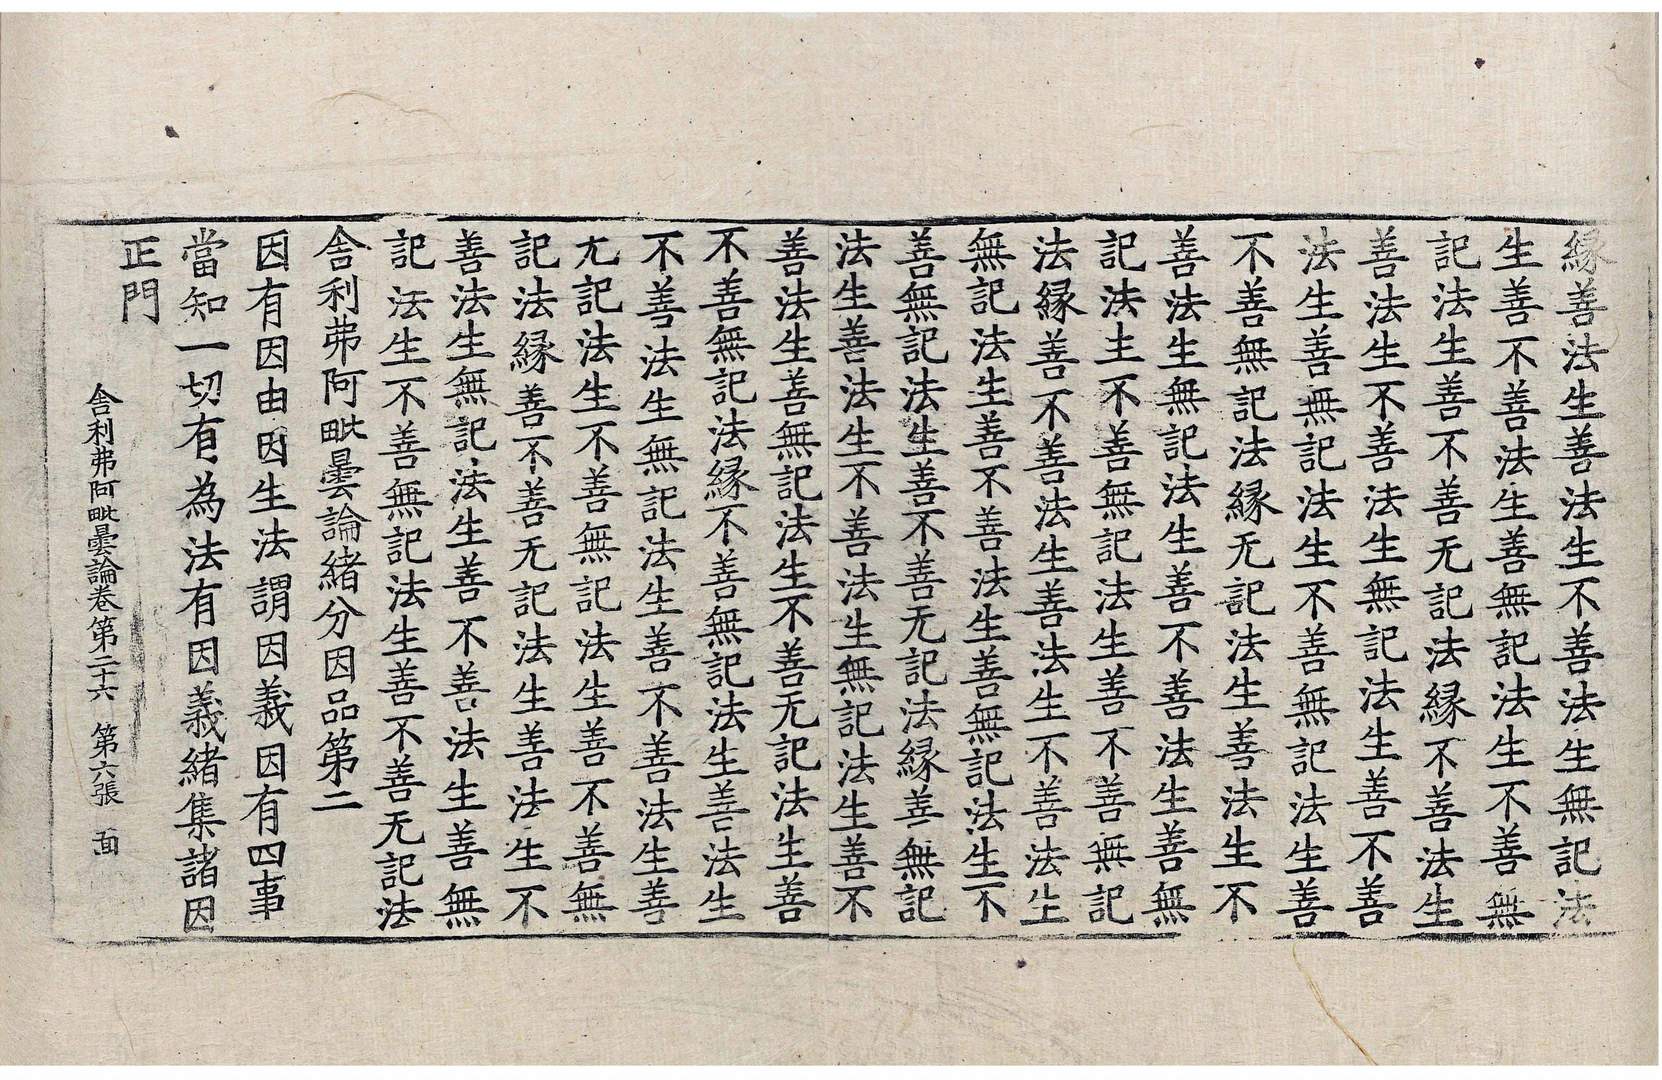 縁善法生善法生不善法生無記法
生善不善法生善無記法生不善無
記法生善不善无記法縁不善法生
善法生不善法生無記法生善不善
法生善無記法生不善無記法生善
不善無記法縁无記法生善法生不
善法生無記法生善不善法生善無
記法生不善無記法生善不善無記
法縁善不善法生善法生不善法生
無記法生善不善法生善無記法生不
善無記法生善不善无記法縁善無記
法生善法生不善法生無記法生善不
善法生善無記法生不善无記法生善
不善無記法縁不善無記法生善法生
不善法生無記法生善不善法生善
无記法生不善無記法生善不善無
記法縁善不善无記法生善法生不
善法生無記法生善不善法生善無
記法生不善無記法生善不善无記法
舍利弗阿毗曇論緒分因品第二
因有因由因生法謂因義因有四事
當知一切有為法有因義緒集諸因
正門
舍利弗阿毗曇論卷第二十六 第六張 面